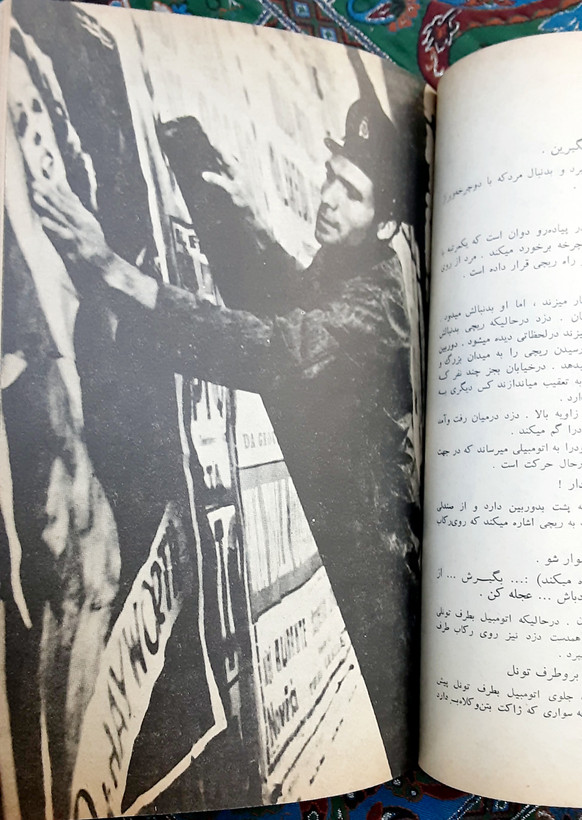 HAYWORTH
DA G
گیرین .
برد و بدنبال مردکه با دوچرخهور از
در پیاده‌رو دوان است که یکمرتبه با
چرخه برخورد میکند . مرد از روی
راه ریچی قرار داده است .
ار میزند ، اما او بدنبالش میدود .
ان . دزد درحالیکه ریچی بدنبالش
یزند درلحظاتی دیده میشود . دوربین
رسیدن ریچی را به میدان بزرگ و
یدهد . درخیابان بجز چند نفر که
به تعقیب میاندازند کس دیگری بـه
دارد .
زاویه بالا . دزد درمیان رفت وآمد
درا گم میکند .
ودرا به اتومبیلی میرساند که در جهت
رحال حرکت است .
دار !
ه پشت بدوربین دارد و از صندلی
به ریچی اشاره میکند که روی‌رکاب
وار شو .
ه میکند) :... بگیــرش ... از
دباش ... عجله کن .
ن . درحالیکه اتومبیل بطرف تونلی
همدست دزد نیز روی رکاب طرف
یبرد .
بروطرف تونل
جلوی اتومبیل بطرف تونل پیش
ه سواری که ژاکت بتن‌وکلاه‌بسر دارد